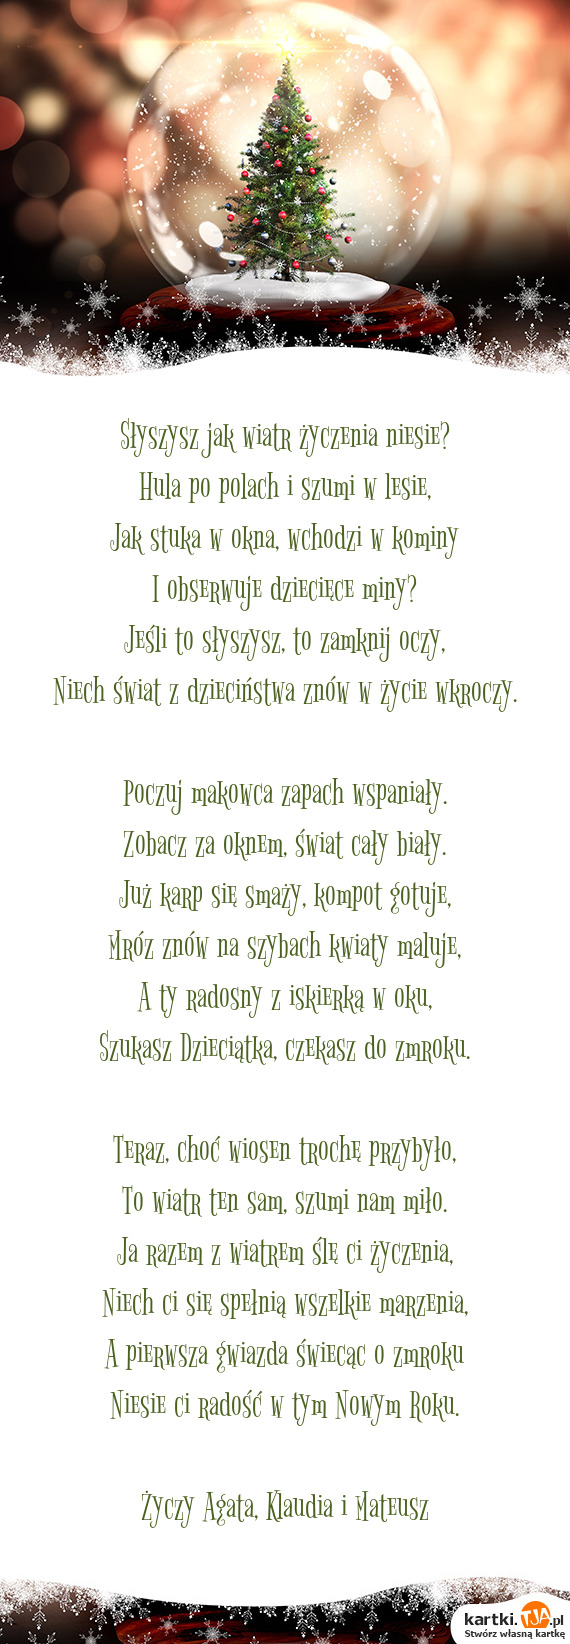 Słyszysz jak wiatr życzenia niesie?
Hula po polach i szumi w lesie,
Jak stuka w okna, wchodzi w kominy
I obserwuje dziecięce miny?
Jeśli to słyszysz, to zamknij oczy,
Niech świat z dzieciństwa znów w życie wkroczy.

Poczuj makowca zapach wspaniały.
Zobacz za oknem, świat cały biały.
Już karp się smaży, kompot gotuje,
Mróz znów na szybach kwiaty maluje,
A ty radosny z iskierką w oku,
Szukasz Dzieciątka, czekasz do zmroku.

Teraz, choć wiosen trochę przybyło,
To wiatr ten sam, szumi nam miło.
Ja razem z wiatrem ślę ci życzenia,
Niech ci się spełnią wszelkie marzenia,
A pierwsza gwiazda świecąc o zmroku
Niesie ci radość w tym Nowym Roku.

Życzy Agata, Klaudia i Mateusz
kartki.TJA.pl
Stwórz własną kartkę